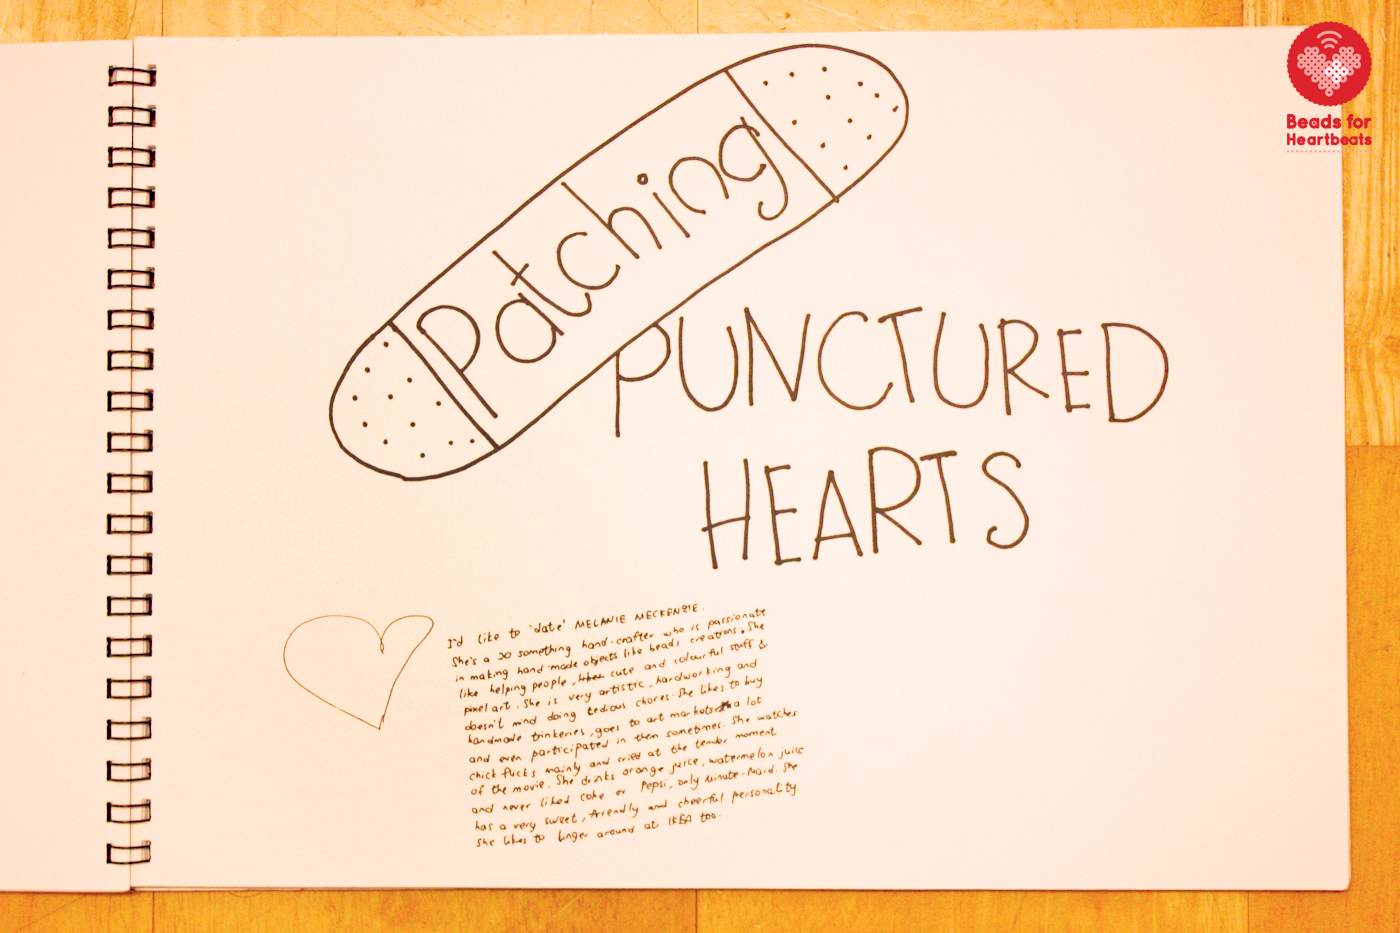 Beads for
Heartbeats
Patching
PUNCTURED
HEARTS
I'd like to 'date' MELANIE MECKENZIE.
She's a 20 something hand-crafter who is passionate
in making hand-made objects like beads creations. She
like helping people, cute and colourful stuff &
pixel art. She is very artistic, hardworking and
doesn't mind doing tedious chores. She likes to buy
handmade trinkeries, goes to art markets a lot
and even participated in them sometimes. She watches
chick flicks mainly and cried at the tender moment
of the movie. She drinks orange juice, watermelon juice
and never liked coke or Pepsi, only Minute-Maid. She
has a very sweet, friendly and cheerful personality.
She likes to linger around at IKEA too.